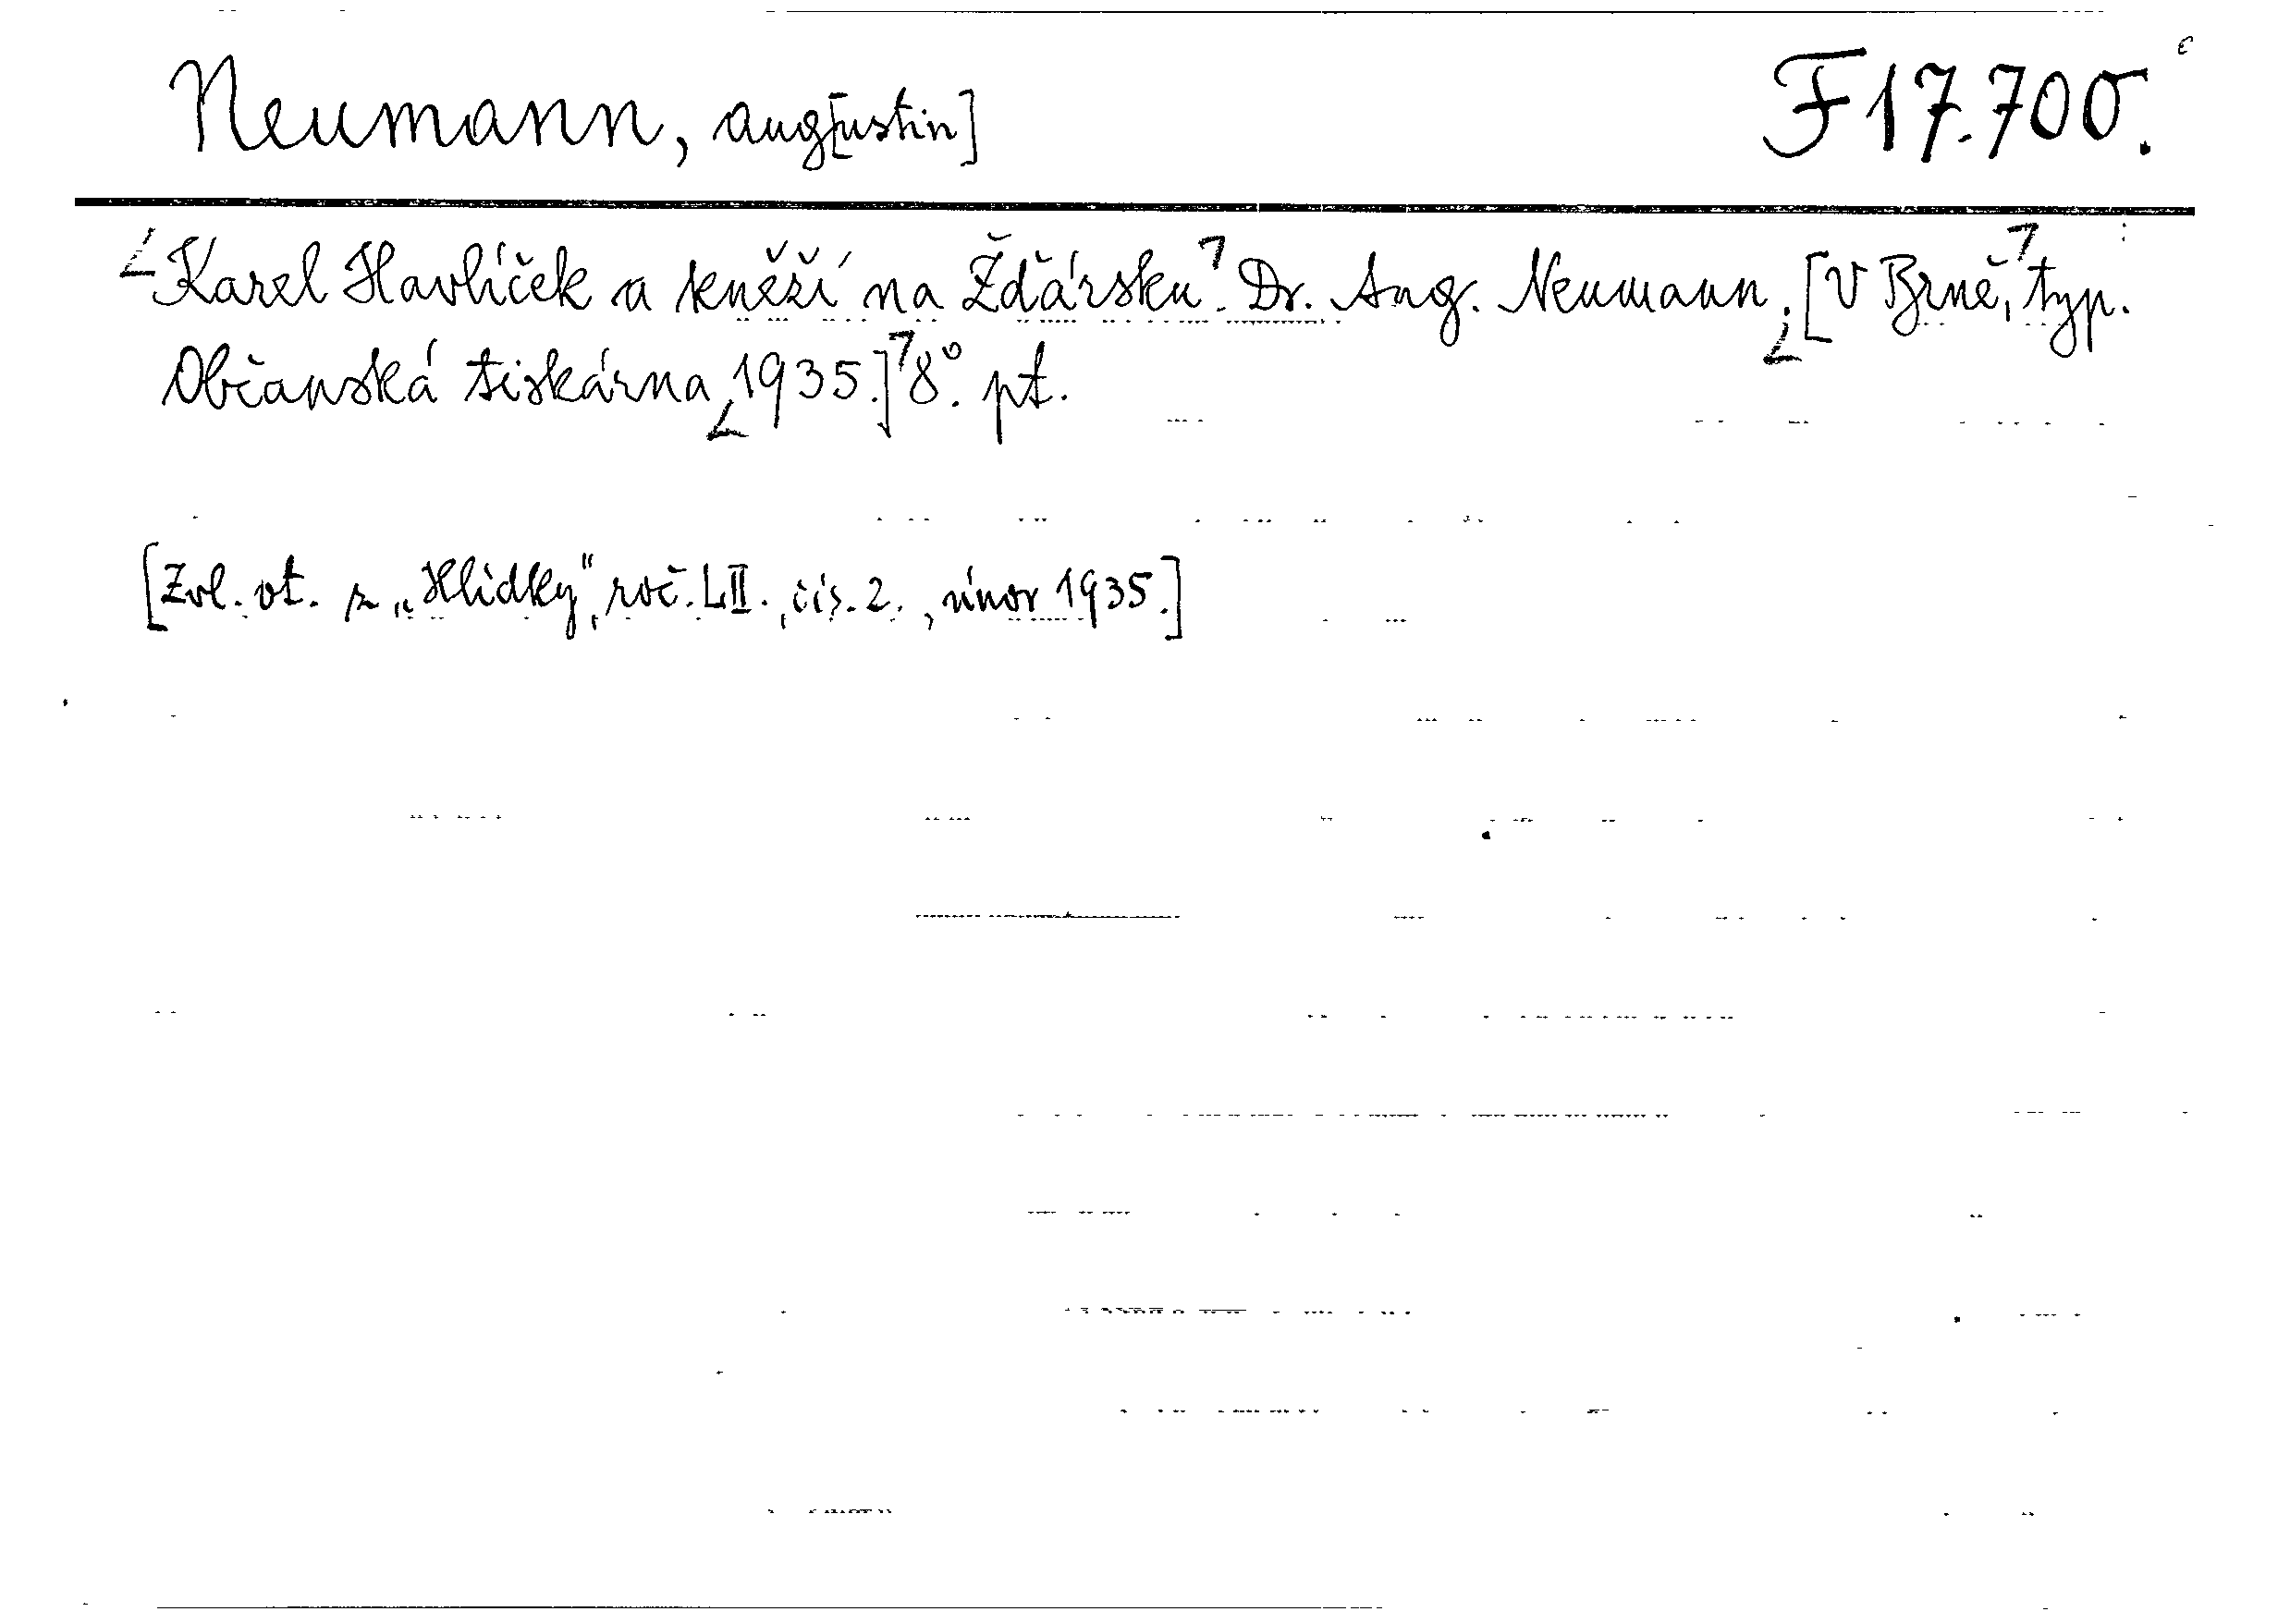 Neumann, Aug[ustin] F 17.700.
Karel Havlíček a kněží na Žďársku. Dr. Aug. Neumann. [V Brně, typ.
Občanská tiskárna, 1935.] 8°. pt.
[Zvl. ot. z „Hlídky“, roč. LII., čís. 2., únor 1935.]